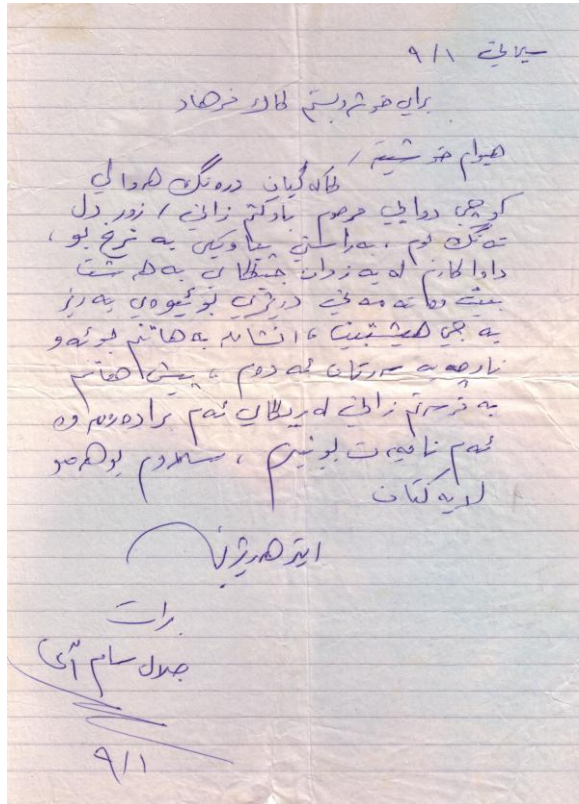 سلێمانی ٩/١
برای خۆشەویستم کاک فرهاد
هیوام خۆشیتە /
کاکە گیان درەنگ هەوالی
کۆچی دوایی مرحوم باوکتم زانی / زور دل
تەنگ بوم ، بەراستی پیاوێکی بە نرخ بو ،
داواکارم لە یەزدان جێگای بەهەشت
بێت وە تەمەنی درێژی بو ئێوەی بەرێز
بە جێ هێشتبێت ، انشاللە بە هاتنم بو ئەو
ناوچەیە سەرتان ئەدەم ، پێش هاتنم
بە فرسەتم زانی لەرێگای ئەم برادەرەوە
ئەم نامەیەت بو بنێرم ، سلاوم بو هەمو
لایەکتان
ایتر هەربژین
برات
جلال سام آغا
٩/١